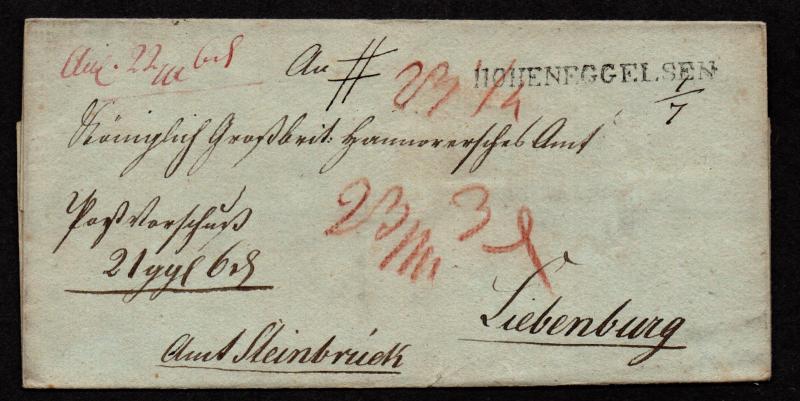 An
HOHENEGGELSEN
1/7
Königlich Großbrit: Hannoversches Amt
Post Vorschuß
21 ggl 6 d
23 3
Liebenburg
Amt Steinbrück